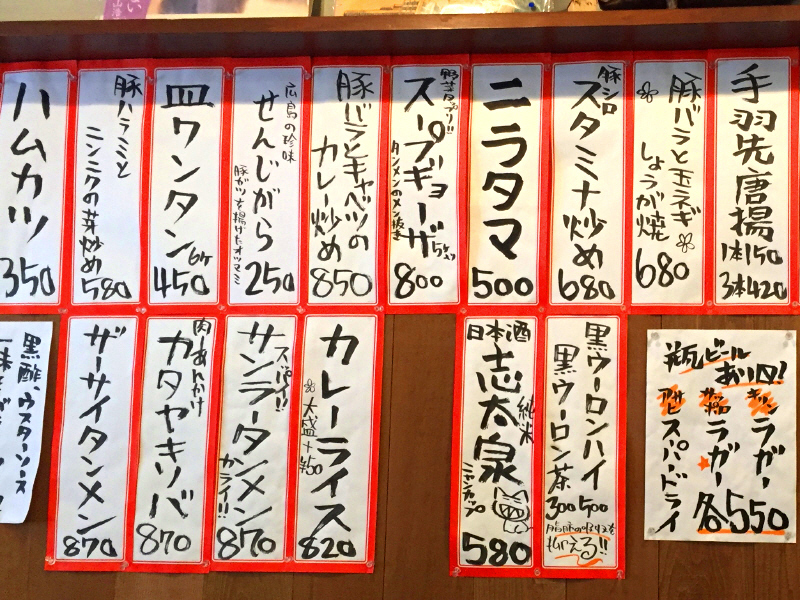 手羽先唐揚
1本150
3本420
豚バラと玉ネギ
しょうが焼
680
豚シロ
スタミナ炒め
680
ニラタマ
500
野菜たっぷり!!
スープギョーザ
タンメンのメン抜き
800
豚バラとキャベツの
カレー炒め
850
広島の珍味
せんじがら
豚ガツを揚げたオツマミ
250
皿ワンタン
6ケ
450
豚ハラミと
ニンニクの芽炒め
580
ハムカツ
350
瓶ビール
あり〼!
キリン
ラガー
サッポロ
ラガー
アサヒ
スーパードライ
各550
黒ウーロンハイ
500
黒ウーロン茶
300
日本酒
純米
志太泉
ニャンカップ
580
カレーライス
大盛+¥50
820
スパイシー!!
サンラータンメン
カライ!!
870
肉あんかけ
カタヤキソバ
870
ザーサイタンメン
870
黒酢、ウスターソース